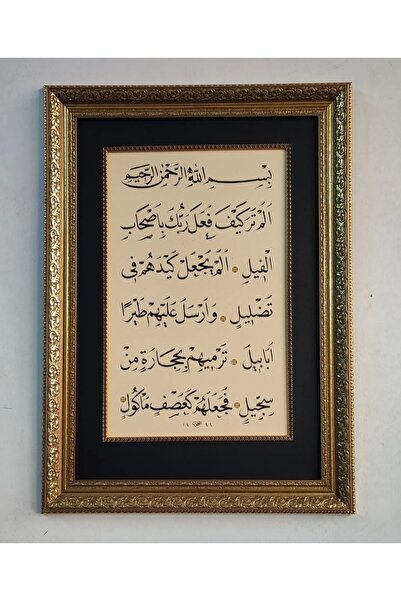 بِسْمِ اللهِ الرَّحْمٰنِ الرَّحِيمِ
اَلَمْ تَرَ كَيْفَ فَعَلَ رَبُّكَ بِاَصْحَابِ
الْفِيلِ ۞ اَلَمْ يَجْعَلْ كَيْدَهُمْ فِى
تَضْلِيلٍ ۞ وَاَرْسَلَ عَلَيْهِمْ طَيْرًا
اَبَابِيلَ ۞ تَرْمِيهِمْ بِحِجَارَةٍ مِنْ
سِجِّيلٍ ۞ فَجَعَلَهُمْ كَعَصْفٍ مَأْكُولٍ ۞